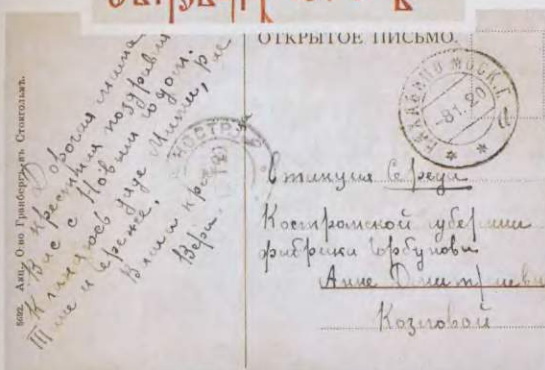 ОТКРЫТОЕ ПИСЬМО.
5692. Акц. О-во Гранбергъ въ Стокгольмъ.
Дорогая мама
крестная поздравляю
Вас с Новым годом.
Кланяюсь дяде Мите,
и Сереже.
Ваша кр
Вера.
КОСТРОМА
МОСК. Г.
-8 1. 20
Станция Середа
Костромской губернии
фабрика Горбунова
Анне Дмитриевн
Козловой